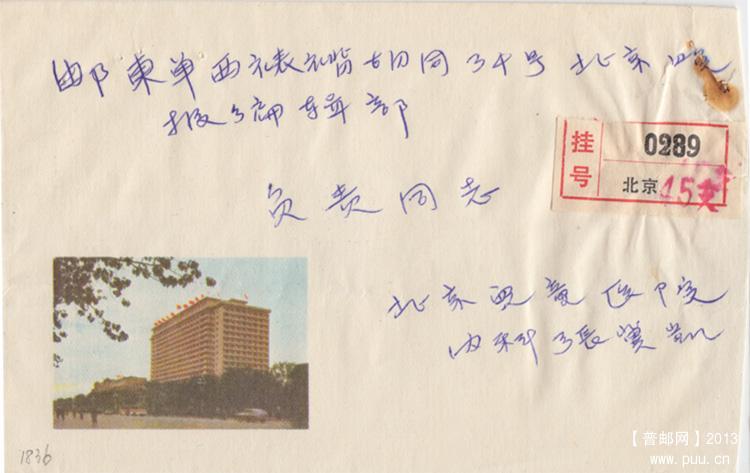 邮 東单西裱褙胡同34号 北京晚
报编辑部
挂号
0289
北京 15支
负责同志
北京
内科 張
1836
【普邮网】2013
www.puu.cn